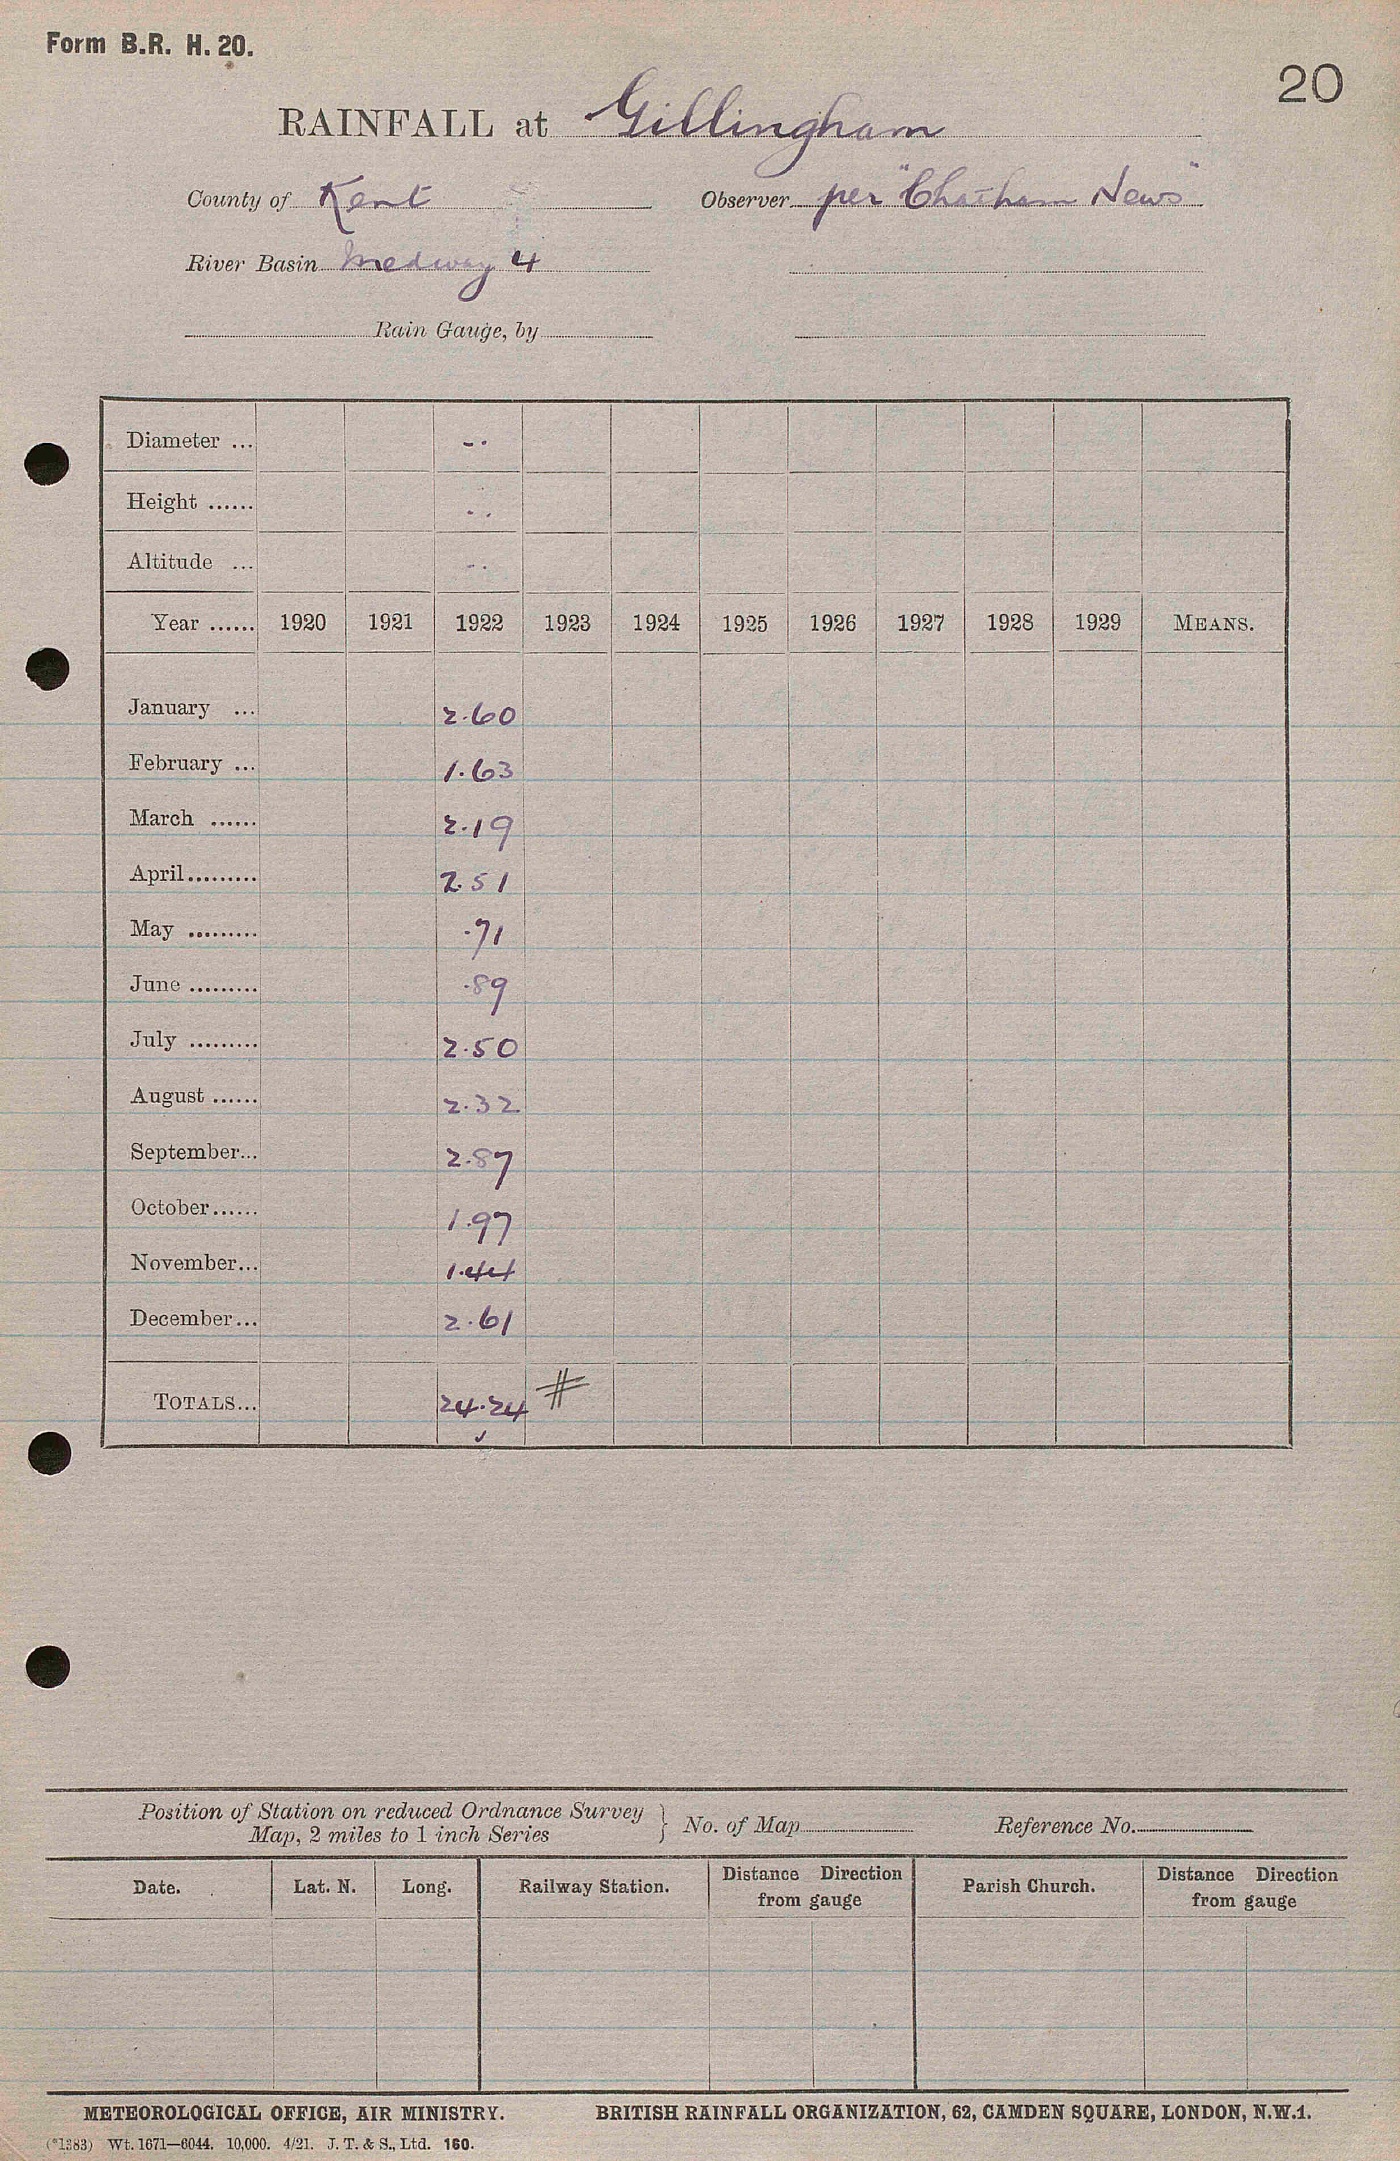 Form B.R. H. 20.
20
RAINFALL at Gillingham
County of Kent Observer per "Chatham News"
River Basin Medway 4
Rain Gauge, by
Diameter ... - .
Height ...... . .
Altitude ... - .
Year ...... 1920 1921 1922 1923 1924 1925 1926 1927 1928 1929 MEANS.
January ... 2.60
February ... 1.63
March ...... 2.19
April ......... 2.51
May ......... .71
June ......... .89
July ......... 2.50
August ...... 2.32
September... 2.87
October ...... 1.97
November... 1.44
December... 2.61
TOTALS... 24.24 #
✓
Position of Station on reduced Ordnance Survey
Map, 2 miles to 1 inch Series } No. of Map Reference No.
Date. Lat. N. Long. Railway Station. Distance Direction from gauge Parish Church. Distance Direction from gauge
METEOROLOGICAL OFFICE, AIR MINISTRY. BRITISH RAINFALL ORGANIZATION, 62, CAMDEN SQUARE, LONDON, N.W.1.
(*1383) Wt. 1671—6044. 10,000. 4/21. J. T. & S., Ltd. 160.